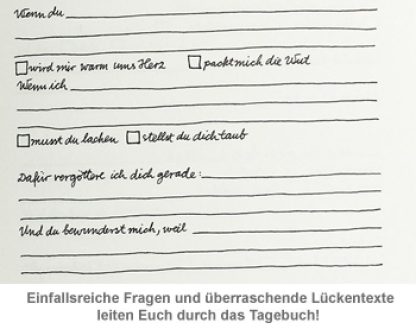 Wenn du
wird mir warm ums Herz packt mich die Wut
Wenn ich
musst du lachen stellst du dich taub
Dafür vergöttere ich dich gerade:
Und du bewunderst mich, weil
Einfallsreiche Fragen und überraschende Lückentexte
leiten Euch durch das Tagebuch!